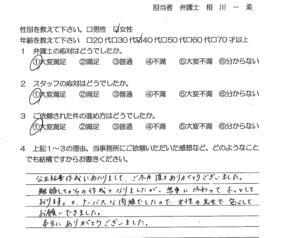 担当者 弁護士 相川一柔
性別を教えて下さい □男性 ☑女性
年齢を教えて下さい □20代□30代☑40代□50代□60代□70才以上
1 弁護士の応対はどうでしたか。
①大変満足 ②満足 ③普通 ④不満 ⑤大変不満 ⑥分からない
2 スタッフの応対はどうでしたか。
①大変満足 ②満足 ③普通 ④不満 ⑤大変不満 ⑥分からない
3 ご依頼された件の進め方はどうでしたか。
①大変満足 ②満足 ③普通 ④不満 ⑤大変不満 ⑥分からない
4 上記1~3の理由、当事務所にご依頼いただいた感想など、どのようなこと
でも結構ですからお書きください。
公正証書作成にあたりまして、ご尽力頂きありがとうございました。
離婚してからの作成となりましたが、無事に終わって ホッとして
おります。と、ナーバスな内容でしたので、女性の先生で安心して
お願いできました。
本当に ありがとうございました。